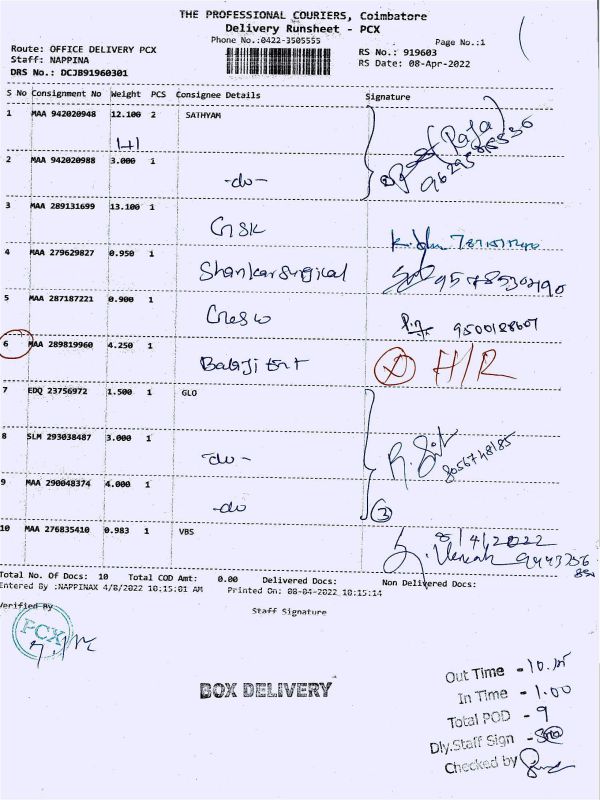 THE PROFESSIONAL COURIERS, Coimbatore
Delivery Runsheet - PCX
Phone No.:0422-3505555
Page No.:1
Route: OFFICE DELIVERY PCX
RS No.: 919603
Staff: NAPPINA
RS Date: 08-Apr-2022
DRS No.: DCJB91960301
S No Consignment No Weight PCS Consignee Details Signature
1 MAA 942020948 12.100 2 SATHYAM
2 MAA 942020988 3.000 1 -do-
3 MAA 289131699 13.100 1 GSK
4 MAA 279629827 0.950 1 Shankar Surgical
5 MAA 287187221 0.900 1
6 MAA 289819960 4.250 1 H/R
7 EDQ 23756972 1.500 1 GLO
8 SLM 293038487 3.000 1 -do- 8056748185
9 MAA 290048374 4.000 1 -do 3
10 MAA 276835410 0.983 1 VBS 8/4/2022
Total No. Of Docs: 10 Total COD Amt: 0.00 Delivered Docs: Non Delivered Docs:
Entered By :NAPPINAX 4/8/2022 10:15:01 AM Printed On: 08-04-2022 10:15:14
Verified By
Staff Signature
PCX
BOX DELIVERY
Out Time - 10.15
In Time - 1.00
Total POD - 9
Dly.Staff Sign -
Checked by